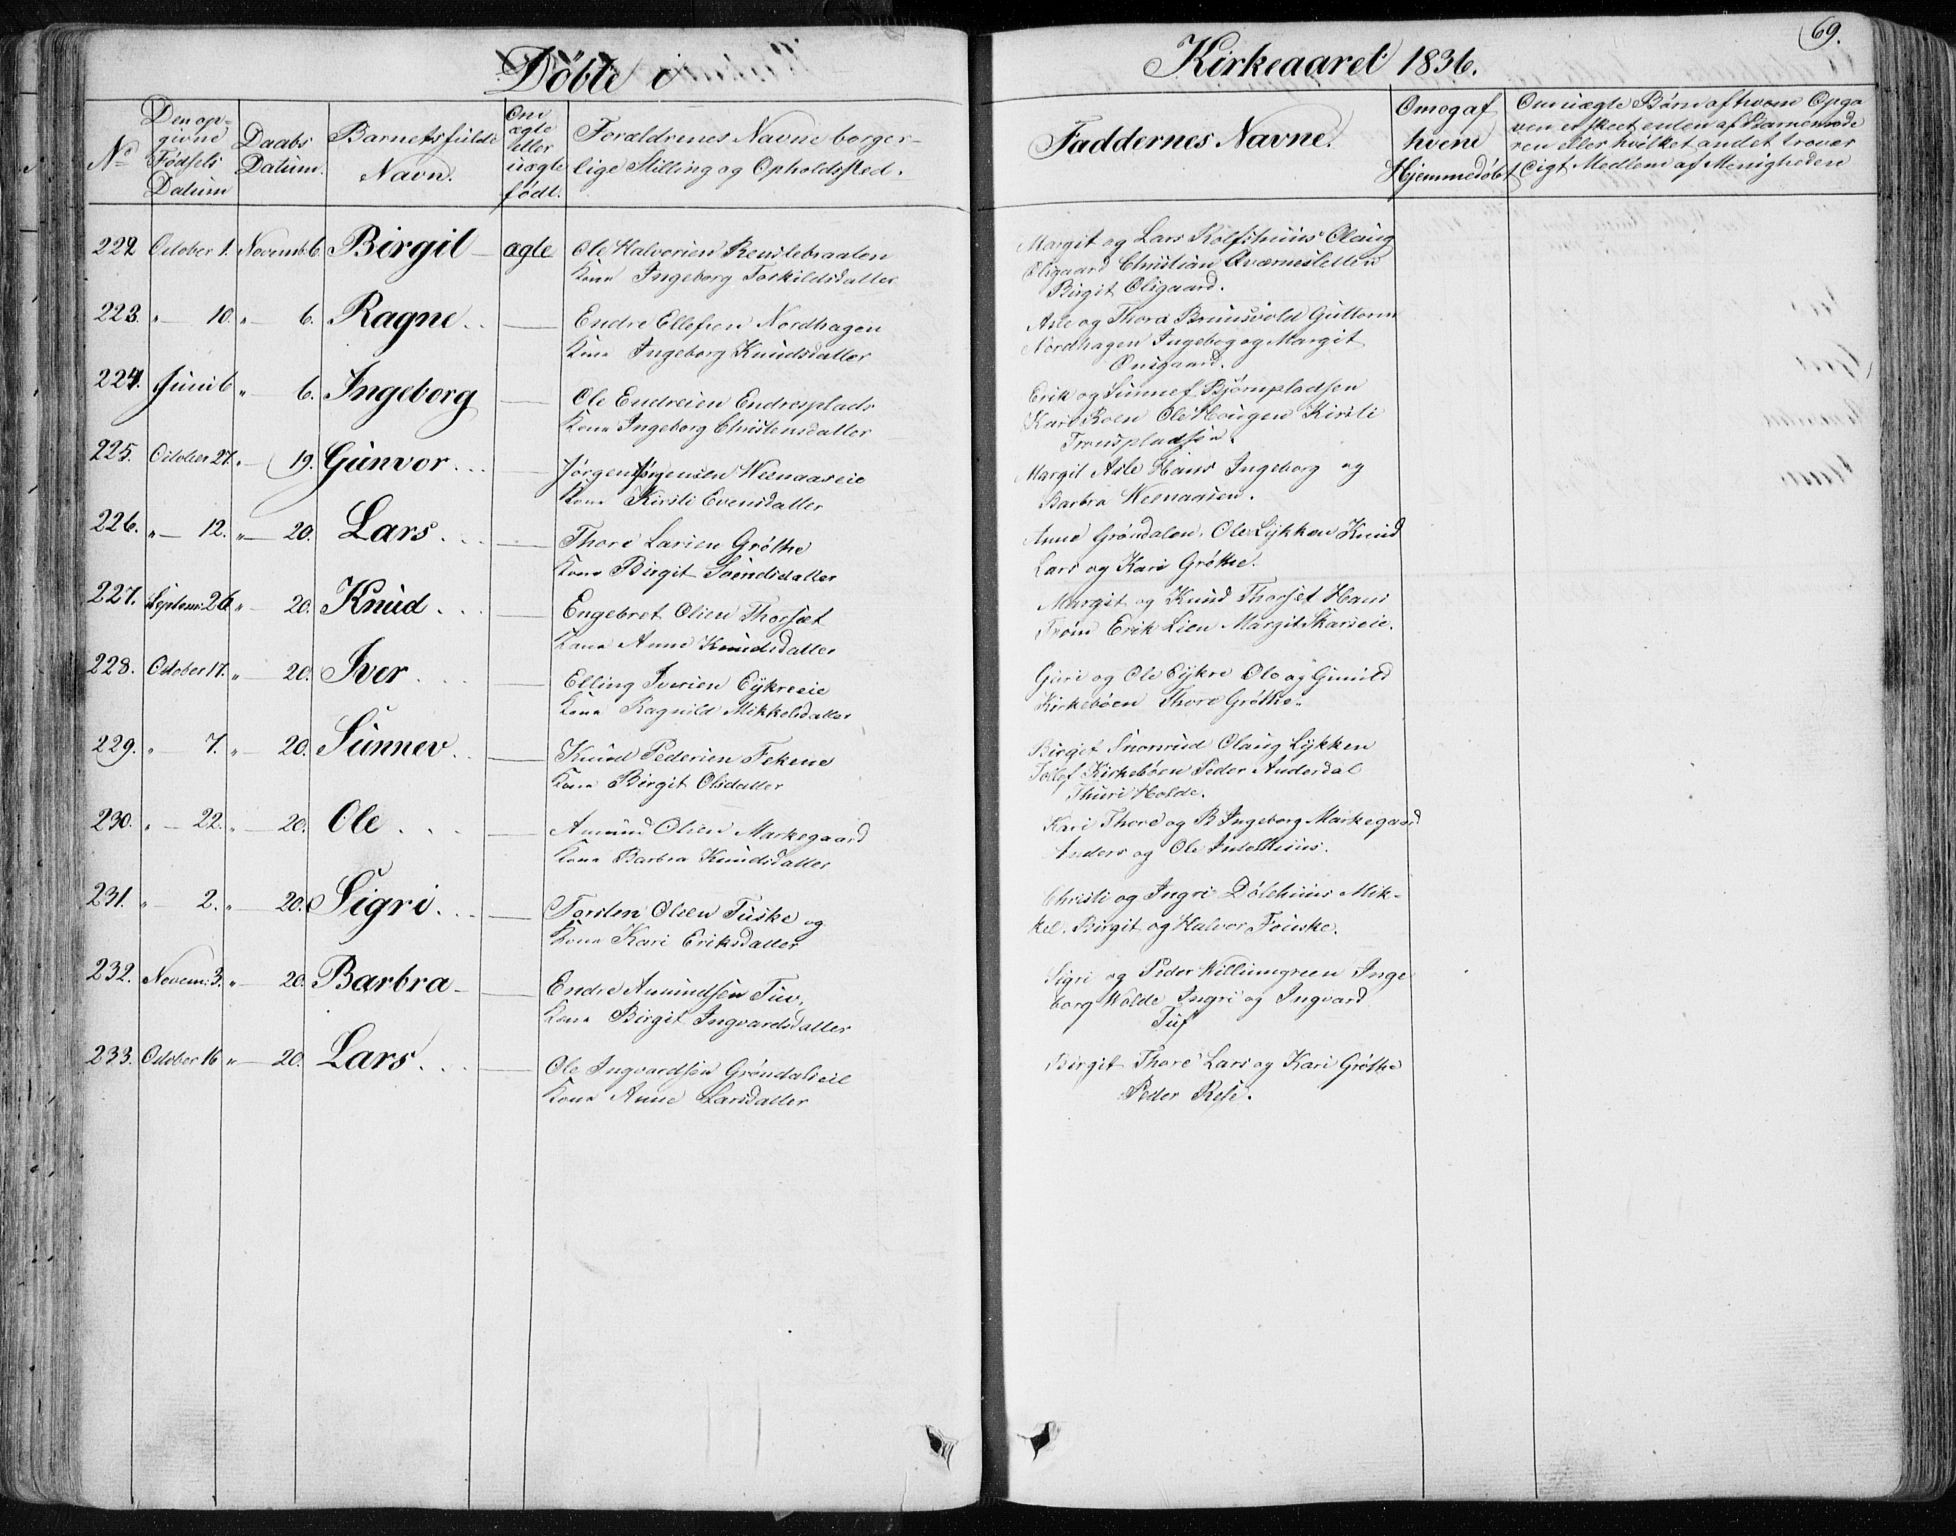 Döbte i
Kirkeaaret 1836.
69.
No
Den op-
givne
Födsels
Datum
Daabs
Datum.
Barnets fulde
Navn.
Om
ægte
eller
uægte
födt.
Forældrenes Navne borger-
lige Stilling og Opholdssted.
Faddernes Navne.
Om og af
hvem
Hjemmedöbt
Om uægte Børn af hvem Opga
ven er skeet enten af Barnemode
ren eller hvilket andet trovær
digt Medlem af Menigheden
222 October 1. Novemb. 6. Birgit - ægte Ole Halvorsen
Kone Ingeborg Torkildsdatter
Margit og Lars Rolfshuus Olaug
Olsgaard Christian
Birgit Olsgaard.
223. " 10. " 6. Ragne. Endre Ellefsen Nordhagen
Kone Ingeborg Knudsdatter
Asle og Thora Bruusvold Guttorm
Nordhagen Ingebog og Margit
224. Juni 6 " 6. Ingeborg Ole Endresen Endresplads
Kone Ingeborg Christensdatter
Erik og Sunnef Björnpladsen
Kari Roen Ole Haugen Kirsti
Trønspladsen.
225. October 27. " 19. Gunvor. Jørgen Jørgensen Wesnaaseie
Kone Kirsti Evensdatter
Margit Asle Hans Ingeborg og
Barbra Wesnaasen.
226. " 12. " 20. Lars. Thore Larsen Gröthe
Kone Birgit Svendsdatter
Anne Gröndalen. Ole Lykken Knud
Lars og Kari Gröthe.
227. Septem: 26 " 20. Knud. Engebret Olsen Thorset
Kone Anne Knudsdatter
Margit og Knud Thorset Hans
Tröm Erik Lien Margit Skarseie.
228. October 17. " 20. Iver Elling Iversen Eykreeie
Kone Ragnild Mikkelsdatter
Guri og Ole Eykre Ole og Gunild
Kirkebøen Thore Gröthe.
229. " 7. " 20. Sunnev. Knud Pedersen Fekene
Kone Birgit Olsdatter
Birget Olaug Lykken
Tollef Kirkebøen Peder Anderdal
Thuri Holde.
230. " 22. " 20. Ole. Amund Olsen Markegaard
Kone Barbra Knudsdatter
Kari Thore og B Ingeborg Markegaard
Anders og Ole
231. " 2. " 20. Sigri. Torsten Olsen Tuske og
Kone Kari Eriksdatter
Christi og Ingri Dölehuus Mik-
kel. Birgit og Halvor
232. Novem: 3. " 20. Barbra - Endre Amundsen Tuv,
Kone Birgit Ingvardsdatter
Sigri og Peder Villumgreen Inge
borg Wolde Ingri og Ingvard
Tuf
233. October 16 " 20. Lars. Ole Ingvardsen Gröndalseie
Kone Anne Larsdatter
Birgit Thore Lars og Kari Gröthe
Peder